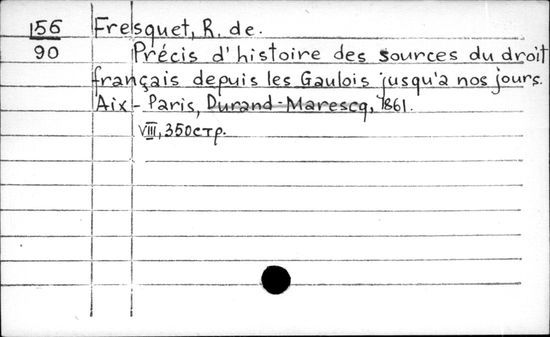 156
90
Fresquet, R. de.
Précis d'histoire des sources du droit
français depuis les Gaulois jusqu'a nos jours.
Aix - Paris, Durand-Marescq, 1861.
VIII, 350стр.